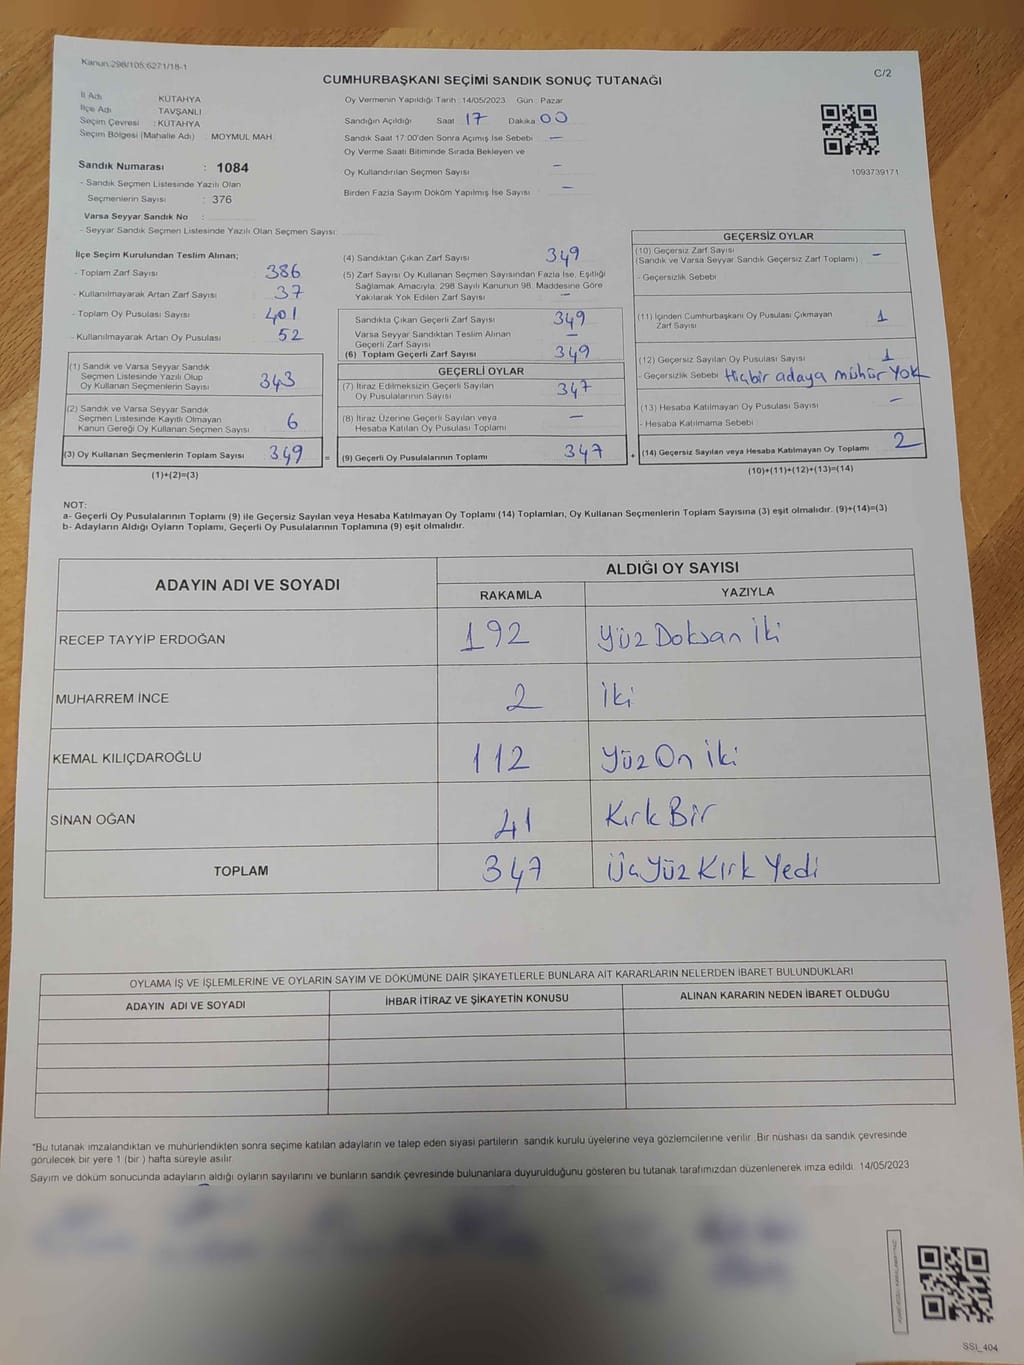 Kanun:298/105;6271/18-1
CUMHURBAŞKANI SEÇİMİ SANDIK SONUÇ TUTANAĞI
C/2
İl Adı : KÜTAHYA
İlçe Adı : TAVŞANLI
Seçim Çevresi : KÜTAHYA
Seçim Bölgesi (Mahalle Adı) : MOYMUL MAH.
Sandık Numarası : 1084
- Sandık Seçmen Listesinde Yazılı Olan
Seçmenlerin Sayısı : 376
Varsa Seyyar Sandık No :
- Seyyar Sandık Seçmen Listesinde Yazılı Olan Seçmen Sayısı:
Oy Vermenin Yapıldığı Tarih : 14/05/2023 Gün : Pazar
Sandığın Açıldığı Saat 17 Dakika 00
Sandık Saat 17:00'den Sonra Açılmış İse Sebebi —
Oy Verme Saati Bitiminde Sırada Bekleyen ve
Oy Kullandırılan Seçmen Sayısı —
Birden Fazla Sayım Döküm Yapılmış İse Sayısı —
1093739171
İlçe Seçim Kurulundan Teslim Alınan;
- Toplam Zarf Sayısı 386
- Kullanılmayarak Artan Zarf Sayısı 37
- Toplam Oy Pusulası Sayısı 401
- Kullanılmayarak Artan Oy Pusulası 52
(1) Sandık ve Varsa Seyyar Sandık
Seçmen Listesinde Yazılı Olup
Oy Kullanan Seçmenlerin Sayısı 343
(2) Sandık ve Varsa Seyyar Sandık
Seçmen Listesinde Kayıtlı Olmayan
Kanun Gereği Oy Kullanan Seçmen Sayısı 6
(3) Oy Kullanan Seçmenlerin Toplam Sayısı 349
(1)+(2)=(3)
(4) Sandıktan Çıkan Zarf Sayısı 349
(5) Zarf Sayısı Oy Kullanan Seçmen Sayısından Fazla İse, Eşitliği
Sağlamak Amacıyla, 298 Sayılı Kanunun 98. Maddesine Göre
Yakılarak Yok Edilen Zarf Sayısı —
Sandıkta Çıkan Geçerli Zarf Sayısı 349
Varsa Seyyar Sandıktan Teslim Alınan
Geçerli Zarf Sayısı —
(6) Toplam Geçerli Zarf Sayısı 349
GEÇERLİ OYLAR
(7) İtiraz Edilmeksizin Geçerli Sayılan
Oy Pusulalarının Sayısı 347
(8) İtiraz Üzerine Geçerli Sayılan veya
Hesaba Katılan Oy Pusulası Toplamı —
= (9) Geçerli Oy Pusulalarının Toplamı 347
GEÇERSİZ OYLAR
(10) Geçersiz Zarf Sayısı
(Sandık ve Varsa Seyyar Sandık Geçersiz Zarf Toplamı) —
- Geçersizlik Sebebi
(11) İçinden Cumhurbaşkanı Oy Pusulası Çıkmayan
Zarf Sayısı 1
(12) Geçersiz Sayılan Oy Pusulası Sayısı 1
- Geçersizlik Sebebi Hiçbir adaya mühür Yok
(13) Hesaba Katılmayan Oy Pusulası Sayısı —
- Hesaba Katılmama Sebebi
+ (14) Geçersiz Sayılan veya Hesaba Katılmayan Oy Toplamı 2
(10)+(11)+(12)+(13)=(14)
NOT:
a- Geçerli Oy Pusulalarının Toplamı (9) ile Geçersiz Sayılan veya Hesaba Katılmayan Oy Toplamı (14) Toplamları, Oy Kullanan Seçmenlerin Toplam Sayısına (3) eşit olmalıdır. (9)+(14)=(3)
b- Adayların Aldığı Oyların Toplamı, Geçerli Oy Pusulalarının Toplamına (9) eşit olmalıdır.
ADAYIN ADI VE SOYADI
ALDIĞI OY SAYISI
RAKAMLA YAZIYLA
RECEP TAYYİP ERDOĞAN 192 Yüz Doksan İki
MUHARREM İNCE 2 İki
KEMAL KILIÇDAROĞLU 112 Yüz On İki
SİNAN OĞAN 41 Kırk Bir
TOPLAM 347 Üç Yüz Kırk Yedi
OYLAMA İŞ VE İŞLEMLERİNE VE OYLARIN SAYIM VE DÖKÜMÜNE DAİR ŞİKAYETLERLE BUNLARA AİT KARARLARIN NELERDEN İBARET BULUNDUKLARI
ADAYIN ADI VE SOYADI İHBAR İTİRAZ VE ŞİKAYETİN KONUSU ALINAN KARARIN NEDEN İBARET OLDUĞU
*Bu tutanak imzalandıktan ve mühürlendikten sonra seçime katılan adayların ve talep eden siyasi partilerin sandık kurulu üyelerine veya gözlemcilerine verilir. Bir nüshası da sandık çevresinde
görülecek bir yere 1 (bir ) hafta süreyle asılır.
Sayım ve döküm sonucunda adayların aldığı oyların sayılarını ve bunların sandık çevresinde bulunanlara duyurulduğunu gösteren bu tutanak tarafımızdan düzenlenerek imza edildi. 14/05/2023
SSI_404